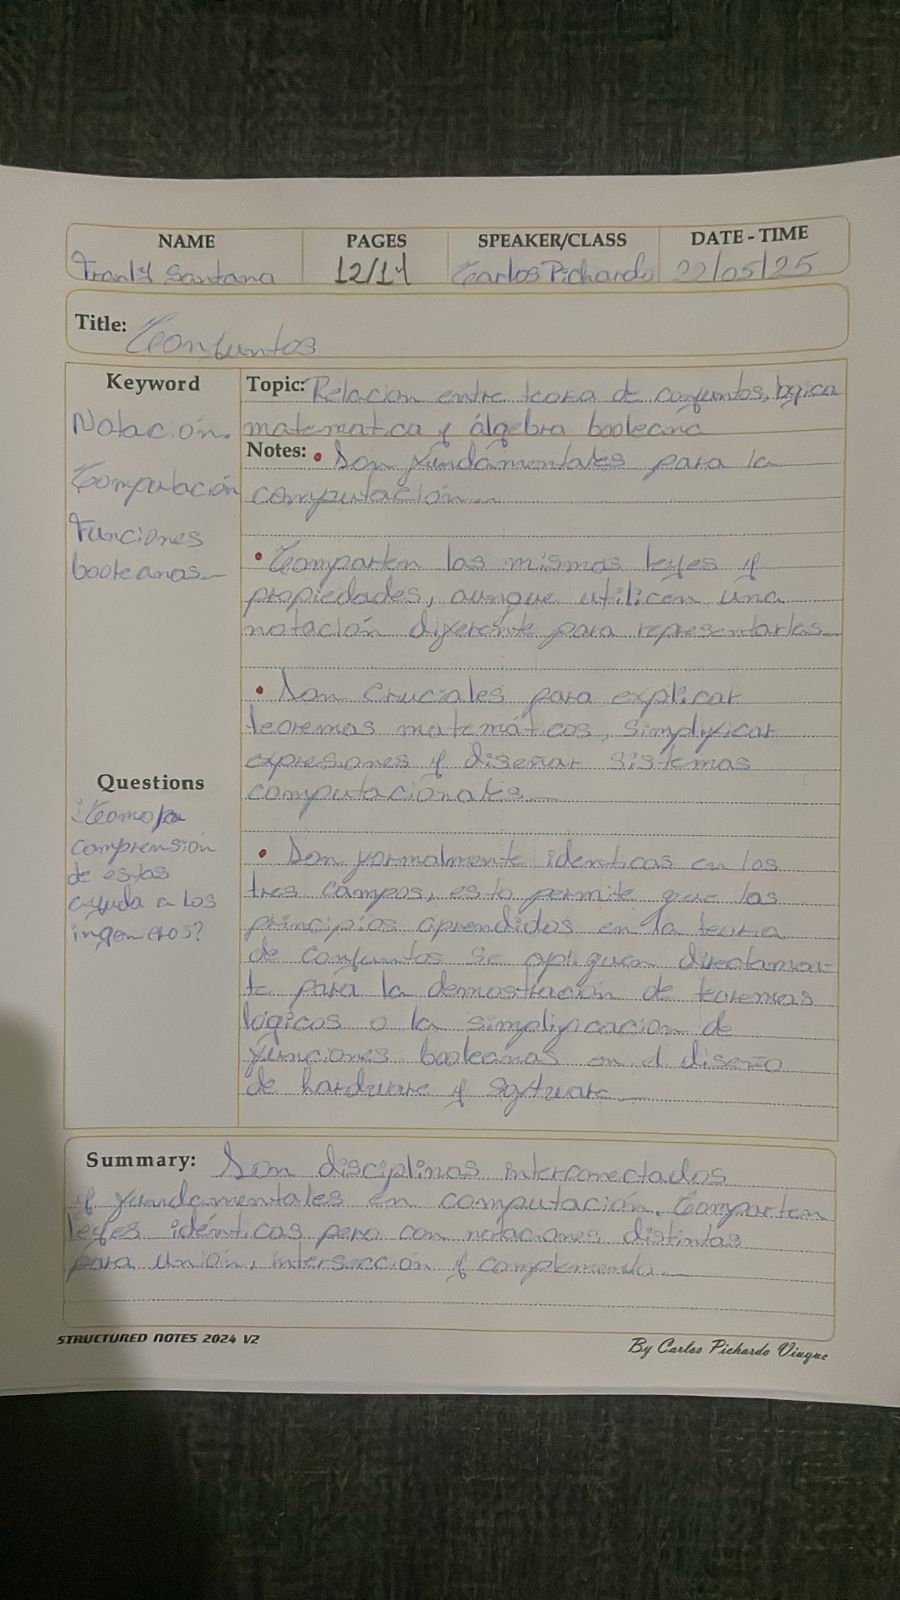 NAME PAGES SPEAKER/CLASS DATE - TIME
Franly Santana 12/14 Carlos Pichardo 22/05/25
Title: Conjuntos
Keyword
Notación.
Computación
Funciones
booleanas
Topic: Relacion entre teoria de conjuntos, logica
matematica y álgebra booleana
Notes: • Son fundamentales para la
computación.
• Comparten las mismas leyes y
propiedades, aunque utilicen una
notación diferente para representarlas.
• Son cruciales para explicar
teoremas matemáticos, simplificar
expresiones y diseñar sistemas
computacionales.
• Son formalmente identicas en los
tres campos, esto permite que los
principios aprendidos en la teoria
de conjuntos se apliquen directamen-
te para la demostración de teoremas
lógicos o la simplificacion de
funciones booleanas en el diseño
de hardware y software.
Questions
¿Como la
comprensión
de estas
ayuda a los
ingenieros?
Summary: Son disciplinas interconectadas
y fundamentales en computación. Comparten
leyes idénticas pero con notaciones distintas
para unión, intersección y complemento.
STRUCTURED NOTES 2024 V2
By Carlos Pichardo Viuque